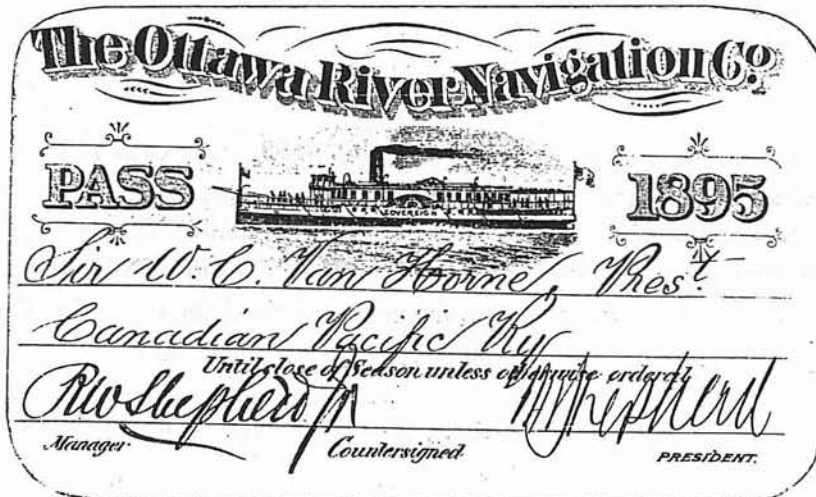 The Ottawa River Navigation Co.
PASS
1895
SOVEREIGN
Sir W. C. Van Horne, Prest.
Canadian Pacific Ry
Until close of Season unless otherwise ordered
RW Shepherd Jr
Shepherd
Manager. Countersigned. PRESIDENT.